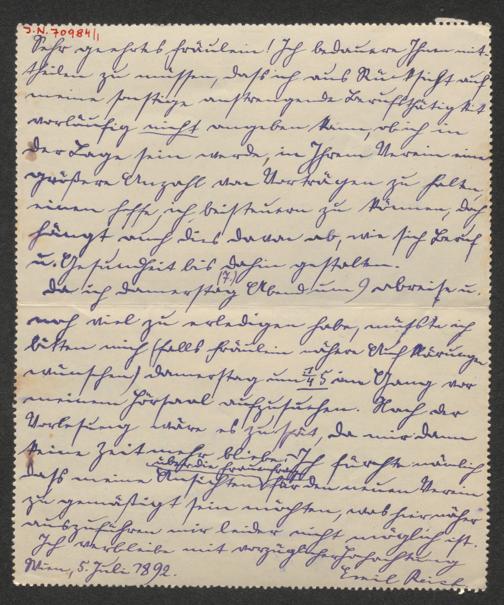 J.N. 70984/1
Sehr geehrtes Fräulein! Ich bedauere Ihnen mit-
theilen zu müssen, dass ich aus Rücksicht auf
meine sonstige anstrengende Berufsthätigkeit
vorläufig nicht angeben kann, ob ich in
der Lage sein werde, in Ihrem Verein eine
größere Anzahl von Vorträgen zu halten,
einen hoffe ich beisteuern zu können, doch
hängt auch dies davon ab, wie sich Beruf
u. Gesundheit bis dahin gestalten.
Da ich donnerstag (7.) Abend um 9 abreise u.
noch viel zu erledigen habe, müsste ich
bitten mich (falls Fräulein nähere Aufklärungen
wünschen) donnerstag um 1/4 5 am Gang vor
meinem Hörsaal aufzusuchen. Nach der
Vorlesung wäre es zu spät, da mir dann
keine Zeit mehr bliebe. Ich fürchte nämlich
über die Frauenfrage
dass meine Ansichten für den neuen Verein
zu gemäßigt sein möchten, was hier näher
auszuführen mir leider nicht möglich ist.
Ich verbleibe mit vorzüglicher Hochachtung
Wien, 5. Juli 1892.
Emil Reich